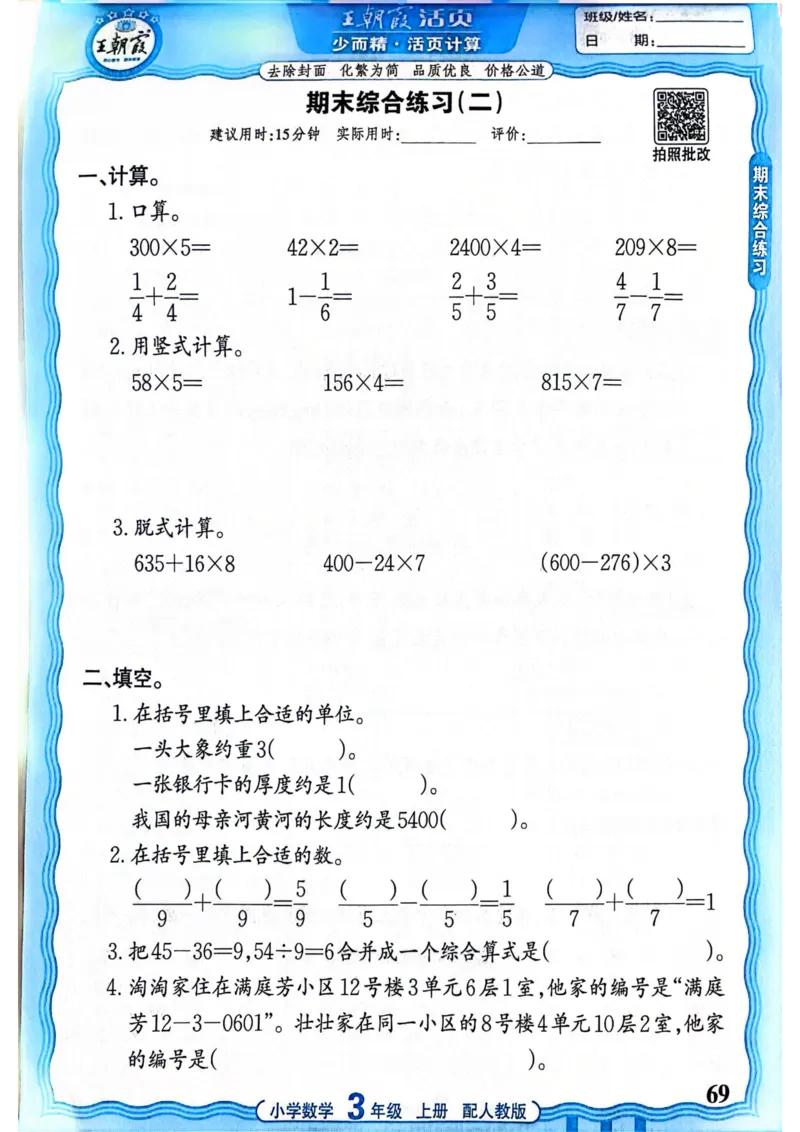 王朝霞
王朝霞 活页
少而精·活页计算
班级/姓名:
日 期:
去除封面 化繁为简 品质优良 价格公道
期末综合练习(二)
建议用时:15分钟 实际用时: 评价:
拍照批改
期末综合练习
一、计算。
1.口算。
300×5= 42×2= 2400×4= 209×8=
1/4+2/4= 1-1/6= 2/5+3/5= 4/7-1/7=
2.用竖式计算。
58×5= 156×4= 815×7=
3.脱式计算。
635+16×8 400-24×7 (600-276)×3
二、填空。
1.在括号里填上合适的单位。
一头大象约重3( )。
一张银行卡的厚度约是1( )。
我国的母亲河黄河的长度约是5400( )。
2.在括号里填上合适的数。
( )/9+( )/9=5/9 ( )/5-( )/5=1/5 ( )/7+( )/7=1
3.把45-36=9,54÷9=6合并成一个综合算式是( )。
4.淘淘家住在满庭芳小区12号楼3单元6层1室,他家的编号是“满庭
芳12-3-0601”。壮壮家在同一小区的8号楼4单元10层2室,他家
的编号是( )。
69
小学数学 3年级 上册 配人教版